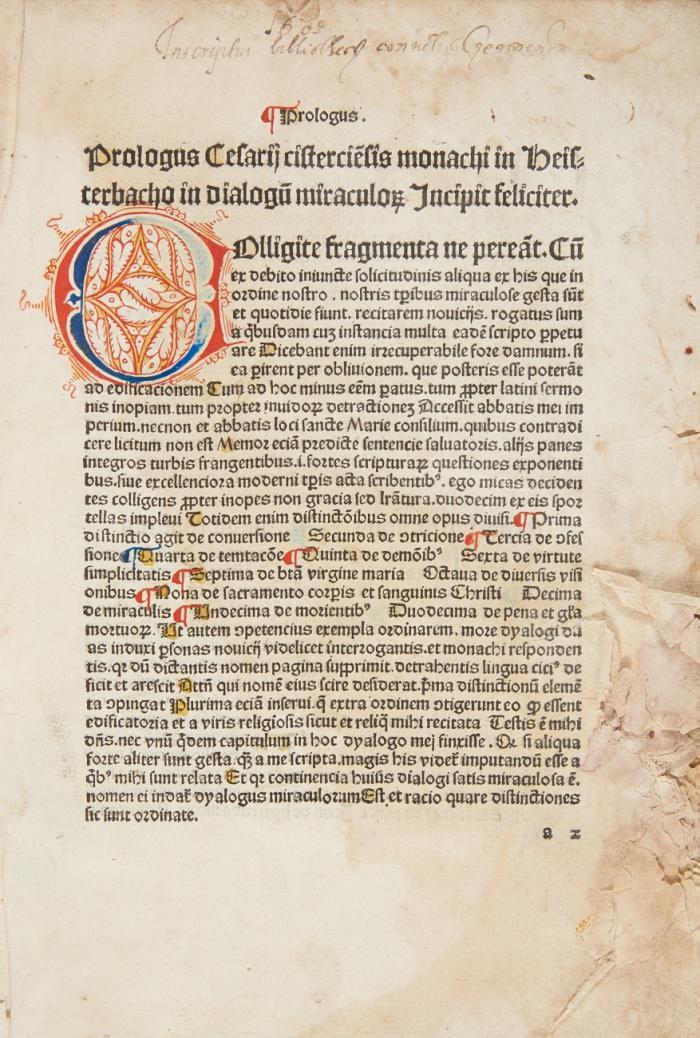 1609
Inscriptus bibliothecę
¶Prologus.
Prologus Cesarij cisterciēsis monachi in Heis⸗
terbacho in dialogū miraculoꝝ Incipit feliciter.
COlligite fragmenta ne pereāt. Cū
ex debito iniuncte solicitudinis aliqua ex his que in
ordine nostro . nostris tꝑibus miraculose gesta sūt
et quotidie fiunt. recitarem nouicijs. rogatus sum
a q̄busdam cuȝ instancia multa eadē scripto ꝑpetu
are Dicebant enim irrecuperabile fore damnum. si
ea ꝑirent per obliuionem. que posteris esse poterāt
ad edificacionem Cum ad hoc minus eēm ꝑatus. tum ꝓpter latini sermo
nis inopiam. tum propter inuidoꝝ detractioneȝ Accessit abbatis mei im
perium. necnon et abbatis loci sancte Marie consilium. quibus contradi
cere licitum non est Memor eciā predicte sentencie saluatoris. alijs panes
integros turbis frangentibus .i. fortes scripturaꝝ questiones exponenti
bus. siue excellenciora moderni tꝑis acta scribentibꝰ. ego micas deciden
tes colligens ꝓpter inopes non gracia sed lrātura. duodecim ex eis spor
tellas impleui Totidem enim distinctōibus omne opus diuisi. ¶Prima
distinctio agit de conuersione Secunda de ↄtricione ¶Tercia de ↄfes
sione ¶Quarta de temtacōe ¶Quinta de demōibꝰ Sexta de virtute
simplicitatis ¶Septima de btā virgine maria Octaua de diuersis visi
onibus ¶Nona de sacramento corꝑis et sanguinis Christi Decima
de miraculis ¶Undecima de morientibꝰ Duodecima de pena et glīa
mortuoꝝ. Ut autem ↄpetencius exempla ordinarem. more dyalogi du
as induxi ꝑsonas nouicij videlicet interrogantis. et monachi responden
tis. qꝛ dū dictantis nomen pagina supprimit. detrahentis lingua ciciꝰ de
ficit et arescit Attn̄ qui nomē eius scire desiderat. p̄ma distinctionū elemē
ta ↄpingat Plurima eciā inserui. q̄ extra ordinem ↄtigerunt eo ꝙ essent
edificatoria et a viris religiosis sicut et reliq̄ mihi recitata Testis ē mihi
dn̄s. nec vnū q̄dem capitulum in hoc dyalogo mej finxisse . Qꝛ si aliqua
forte aliter sunt gesta. q̄ꝫ a me scripta. magis his videt̄ imputandū esse a
q̄bꝰ mihi sunt relata Et qꝛ continencia huius dialogi satis miraculosa ē.
nomen ei indat̄ dyalogus miraculorum Est et racio quare distinctiones
sic sunt ordinate.
a 2